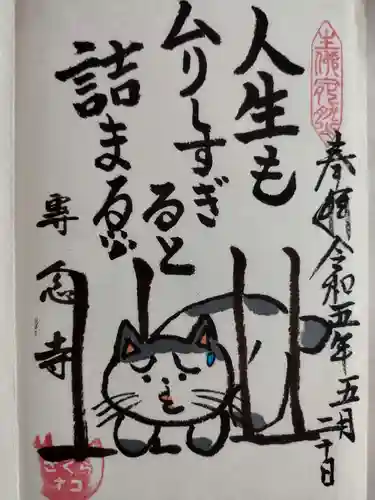 奉拝
令和五年五月二十日
人生も
ムリしすぎ
ると
詰まる
専念寺
さくら
ナコ